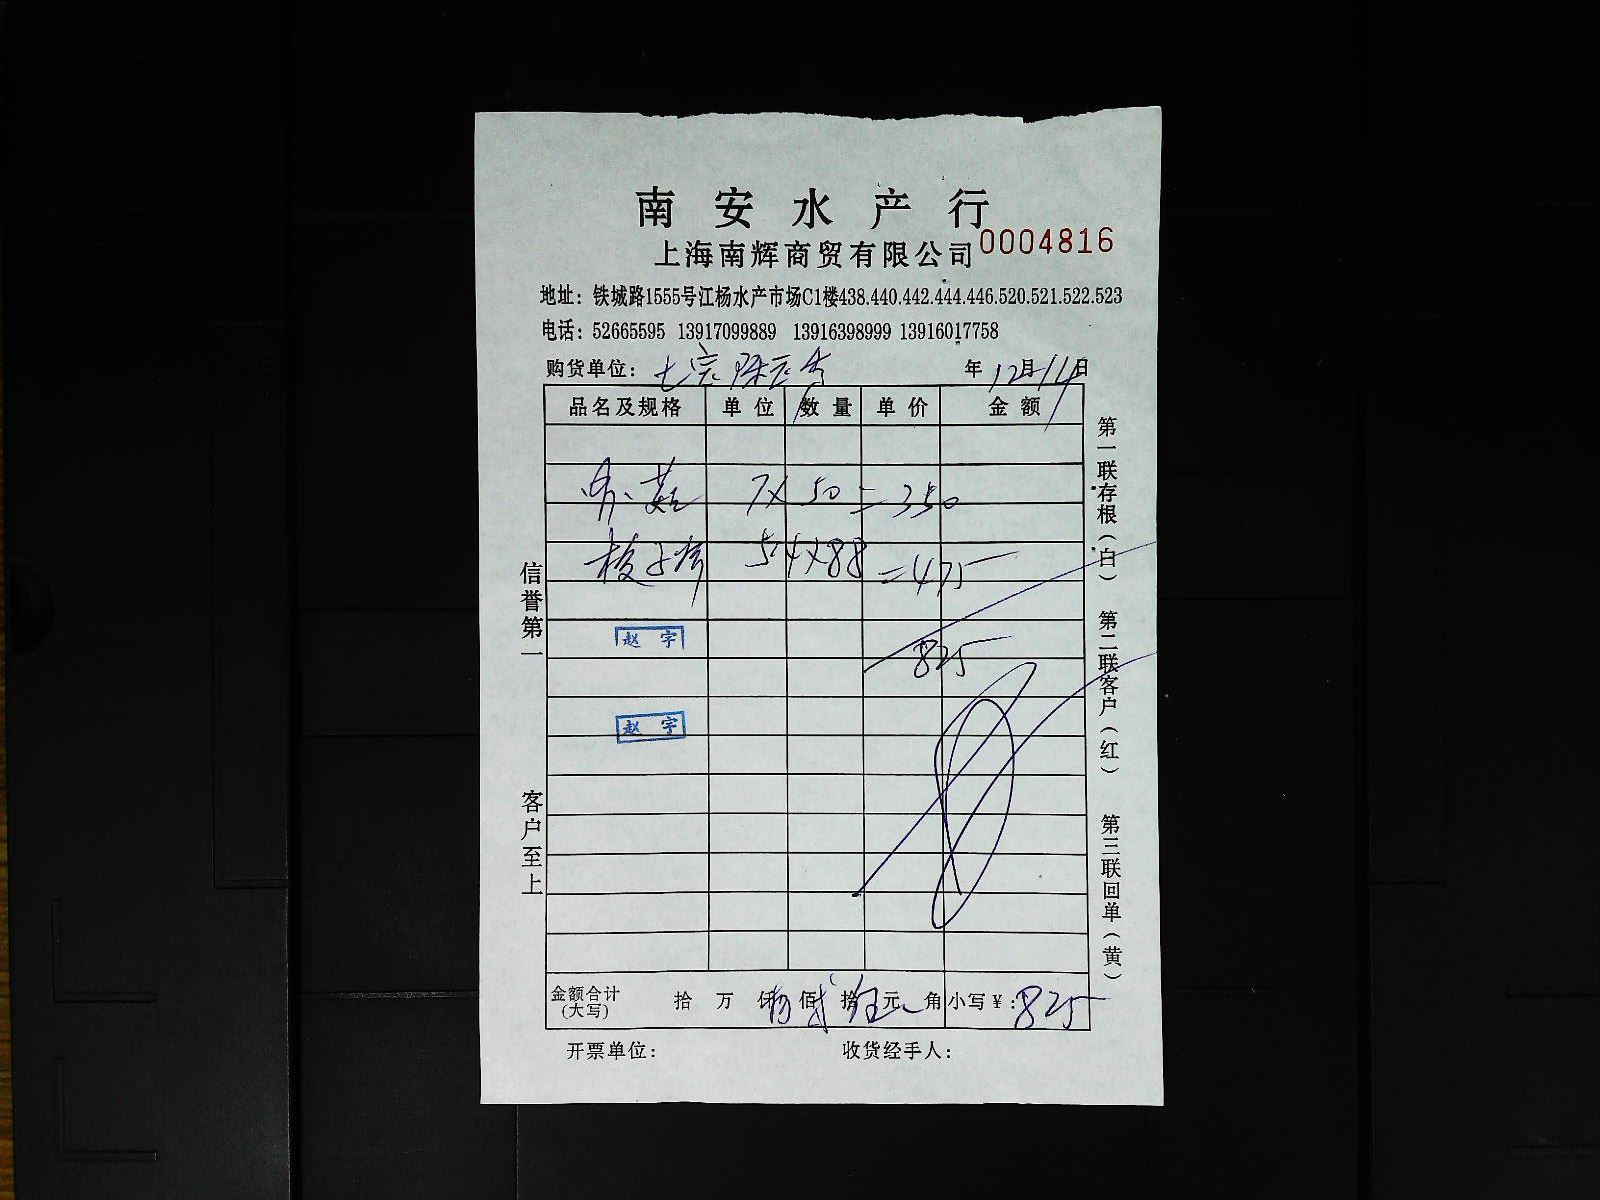 南安水产行
上海南辉商贸有限公司 0004816
地址：铁城路1555号江杨水产市场C1楼438.440.442.444.446.520.521.522.523
电话：52665595 13917099889 13916398999 13916017758
购货单位：七宝 年12月14日
品名及规格 单位 数量 单价 金额
7×50=350
梭子 5.4×88=475
825
赵宇
赵宇
金额合计(大写) 拾 万 仟 捌佰 贰拾 伍元 角 小写￥：825
开票单位： 收货经手人：
信誉第一
客户至上
第一联存根(白) 第二联客户(红) 第三联回单(黄)